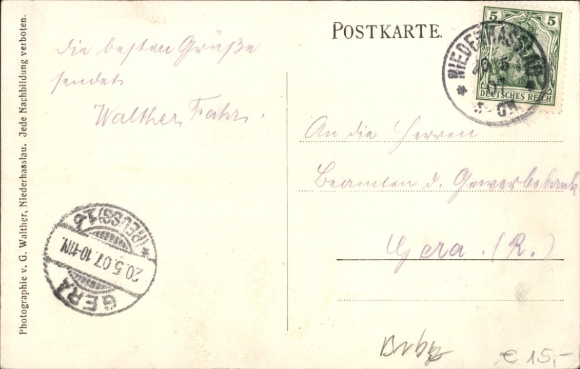 Photographie v. G. Walther, Niederhasslau. Jede Nachbildung verboten.
Die besten Grüße
sendet
Walther
POSTKARTE.
5 5
DEUTSCHES REICH
NIEDERHASSLAU
An die Herren
Beamten d. Gewerbebank
Gera. (R.)
GERA
20.5.07.10-11V.
*(REUSS)1b
€ 15,-